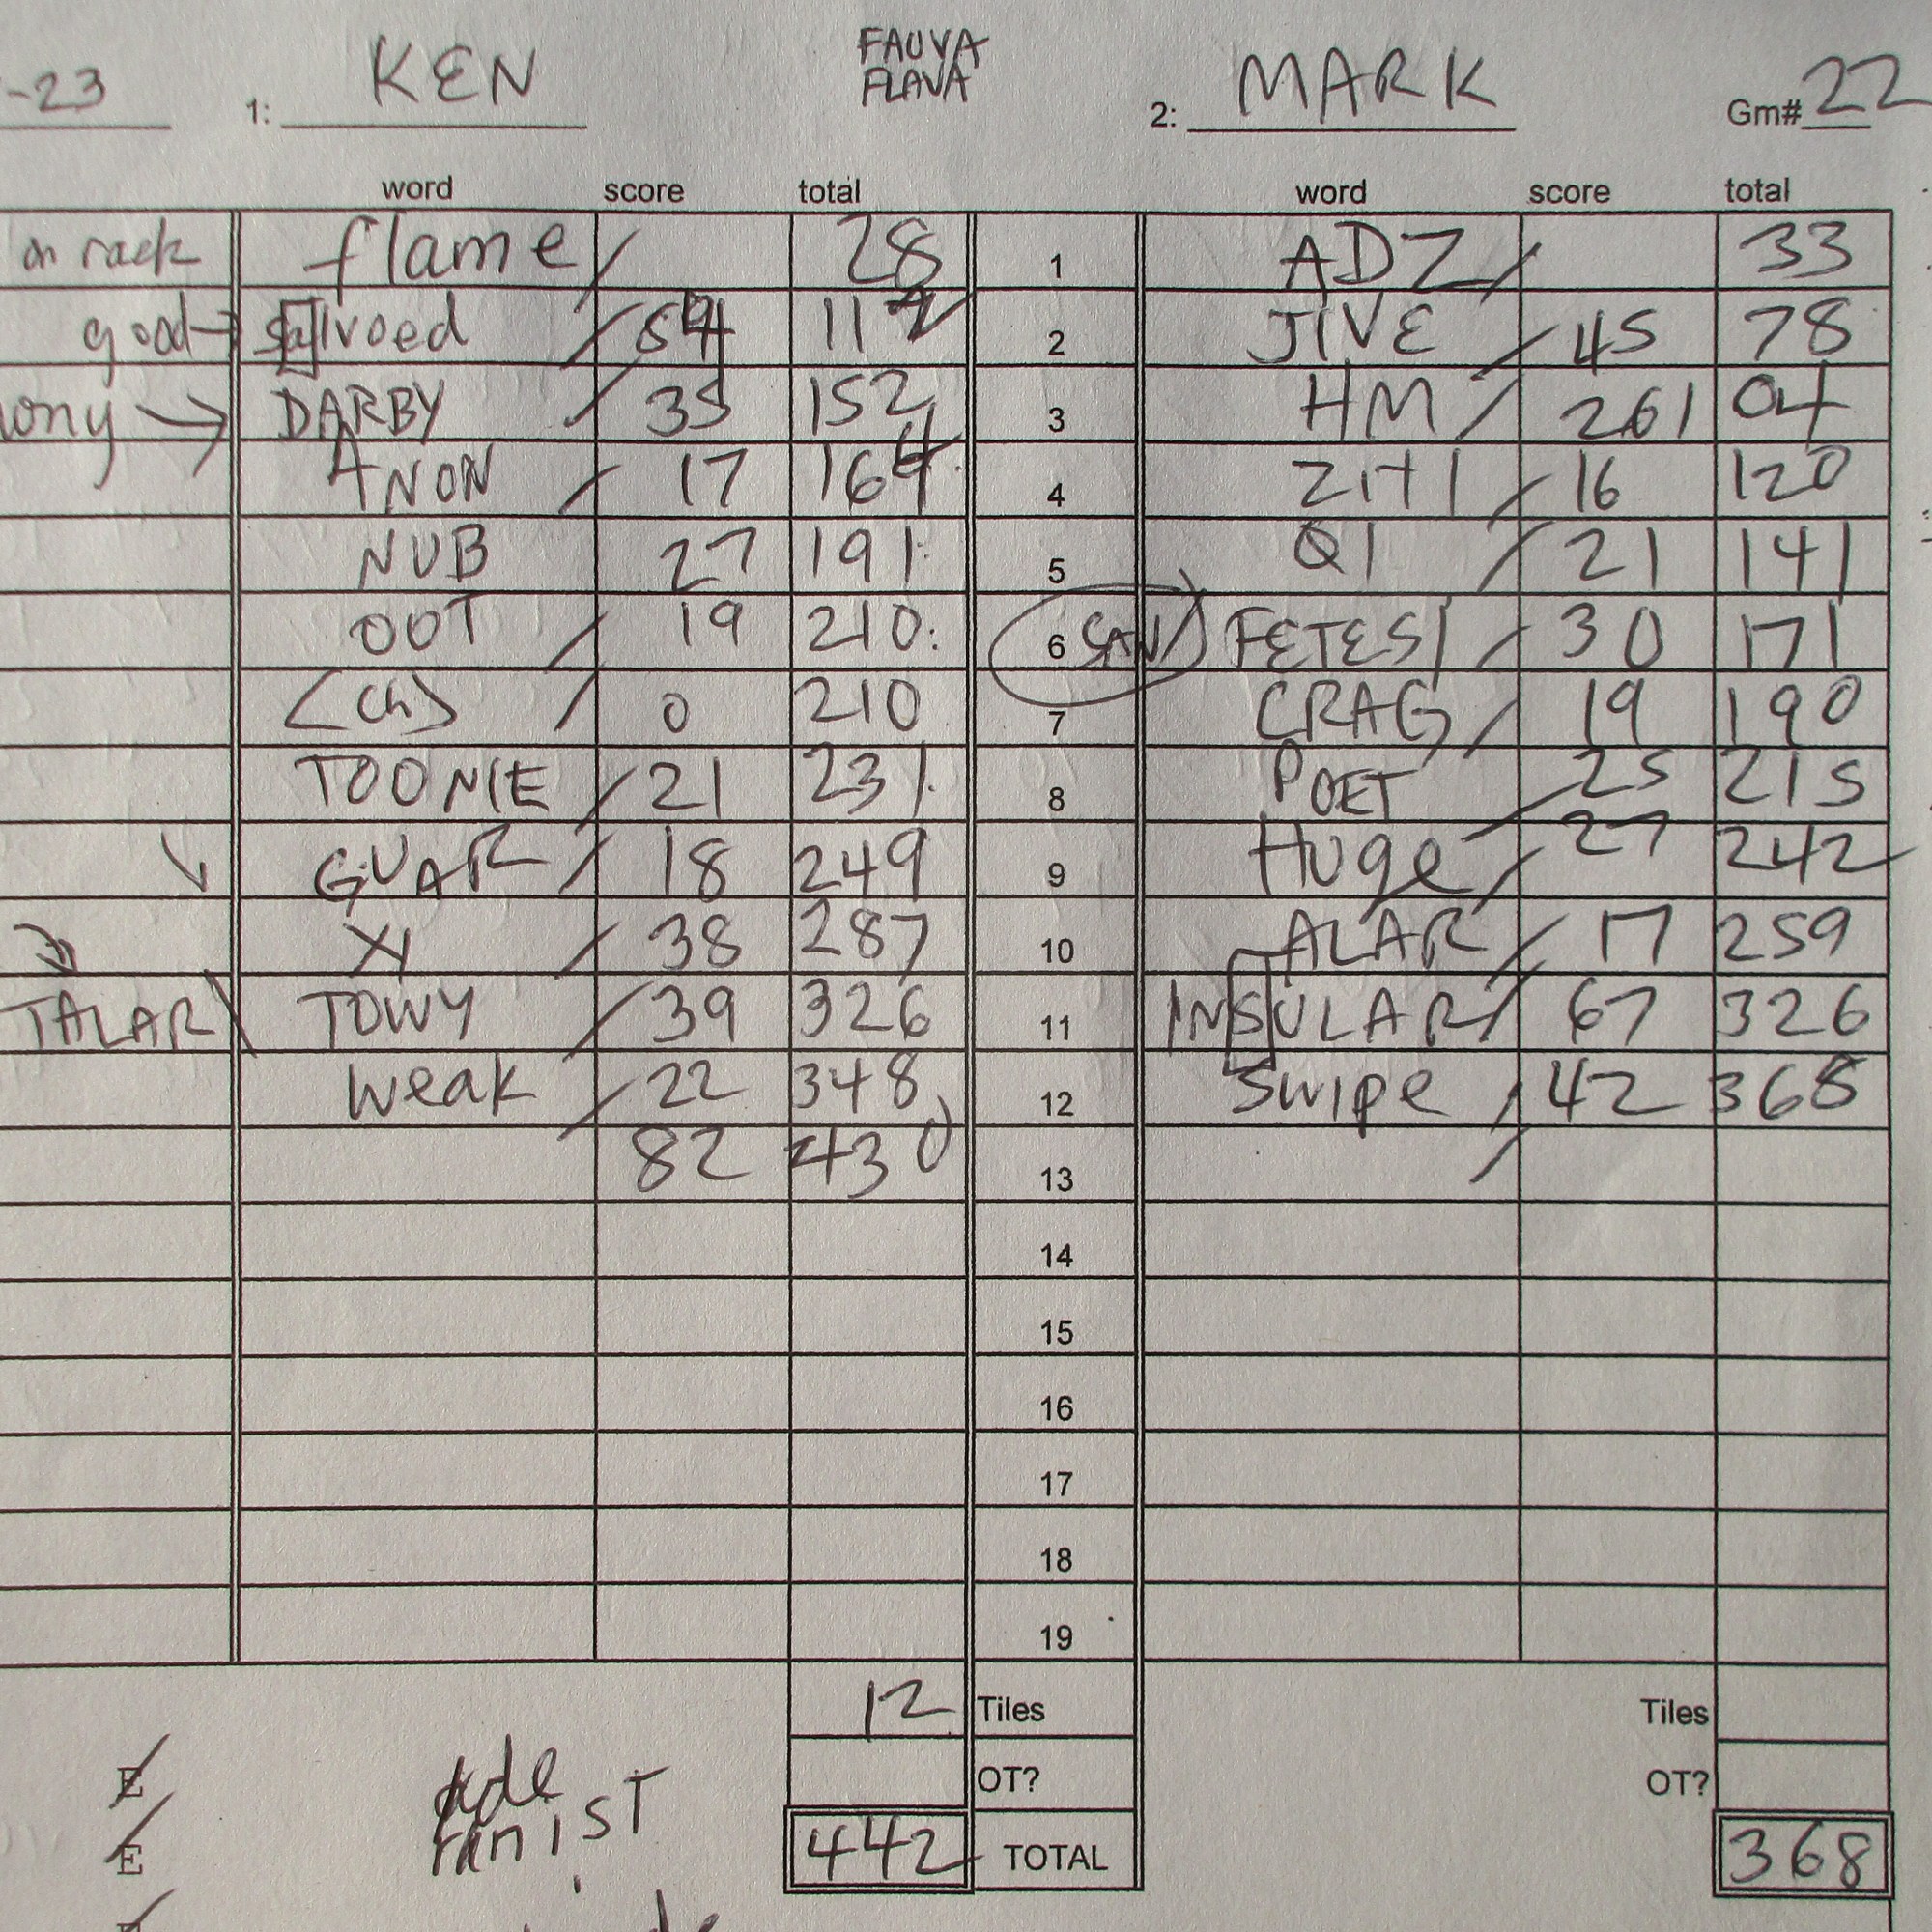 FAUVA
-23 1: KEN FLAVA 2: MARK Gm# 22
word score total word score total
on rack flame 28 1 ADZ 33
good → salvoed 84 112 2 JIVE 45 78
DARBY 35 152 3 HM 26 104
ANON 17 164 4 ZITI 16 120
NUB 27 191 5 QI 21 141
OOT 19 210 6 SAW FETES 30 171
(ch) 0 210 7 CRAG 19 190
TOONIE 21 231 8 POET 25 215
GUAR 18 249 9 HUGE 27 242
XI 38 287 10 ALAR 17 259
TALAR TOWY 39 326 11 INSULAR 67 326
weak 22 348 12 Swipe 42 368
82 430 13
14
15
16
17
18
19
12 Tiles Tiles
E OT? OT?
E 442 TOTAL 368